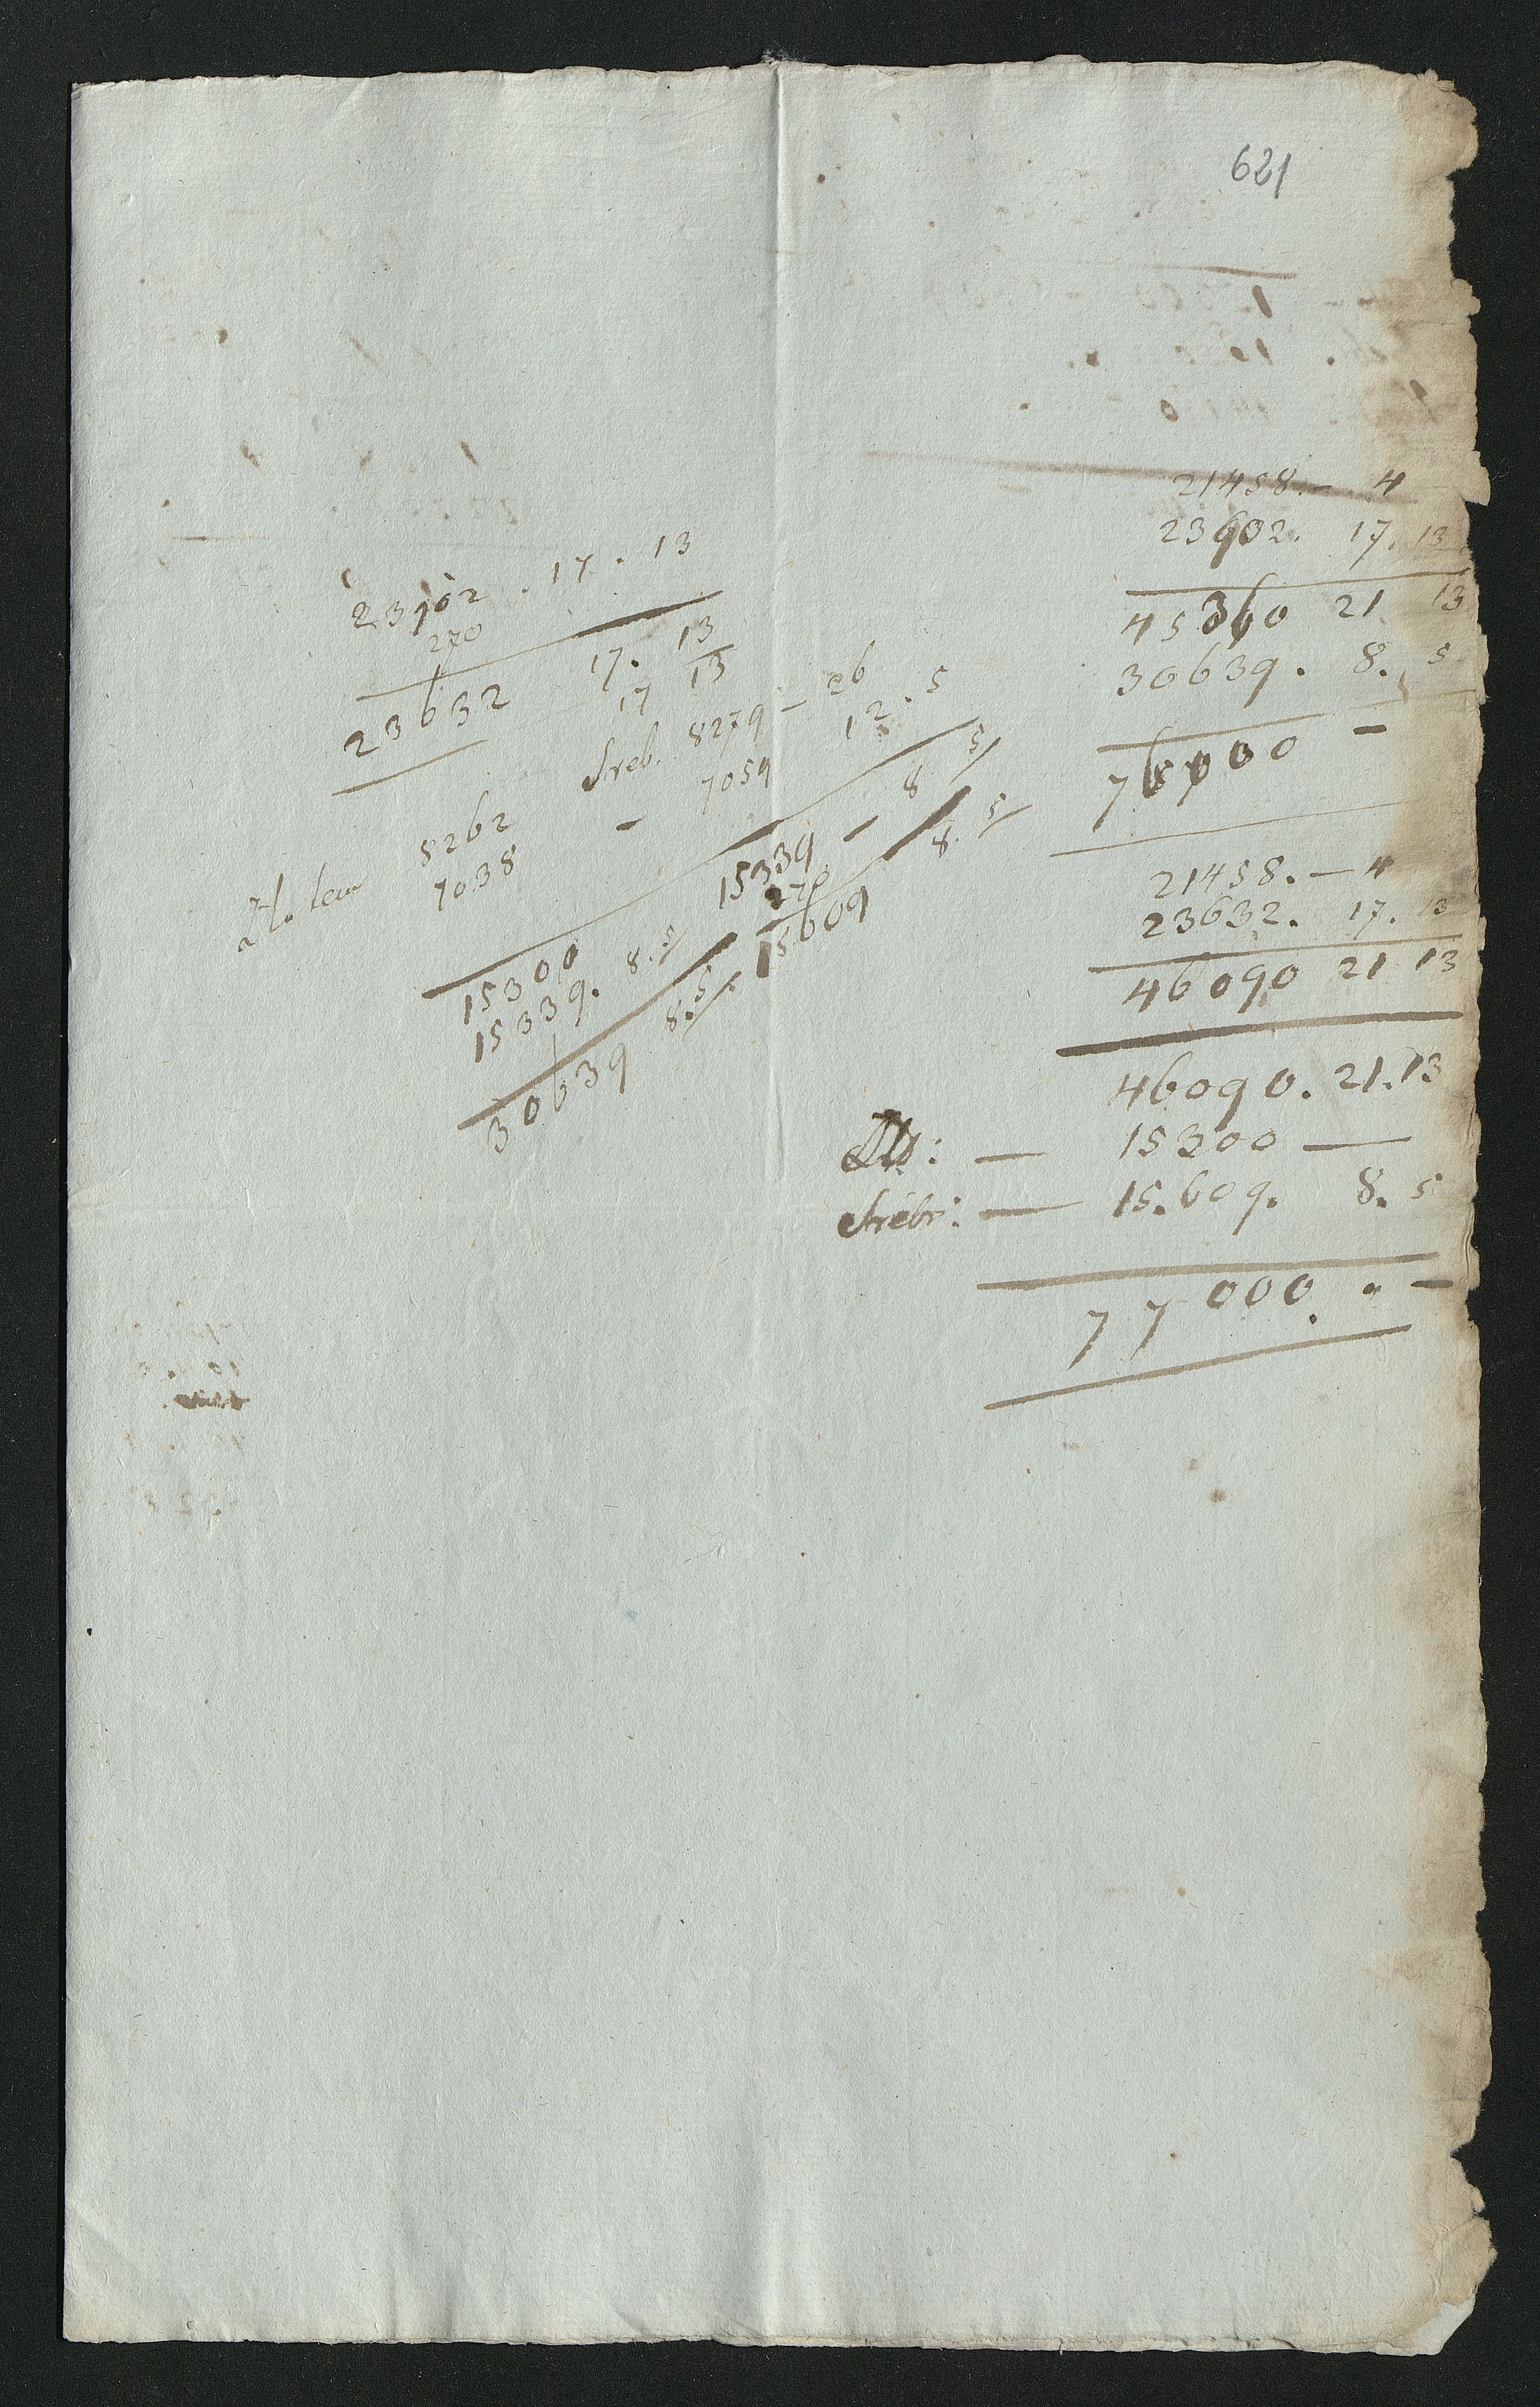 621
23102 . 17 . 13
270
23632 17. 13
17 13
8262 Sreb. 8279 - 26
7038 - 7059 12 . 5
15300 15339 - 8 5
15339. 8. 5 270
30639 8. 5. 15609 8. 5
21458. - 4
23902. 17. 13
45360 21 13
30639. 8. 5
76000 -
21458. - 4
23632. 17. 13
46090 21 13
46090. 21. 13
— 15300 —
Srebr: — 15.609. 8. 5
77000. " -